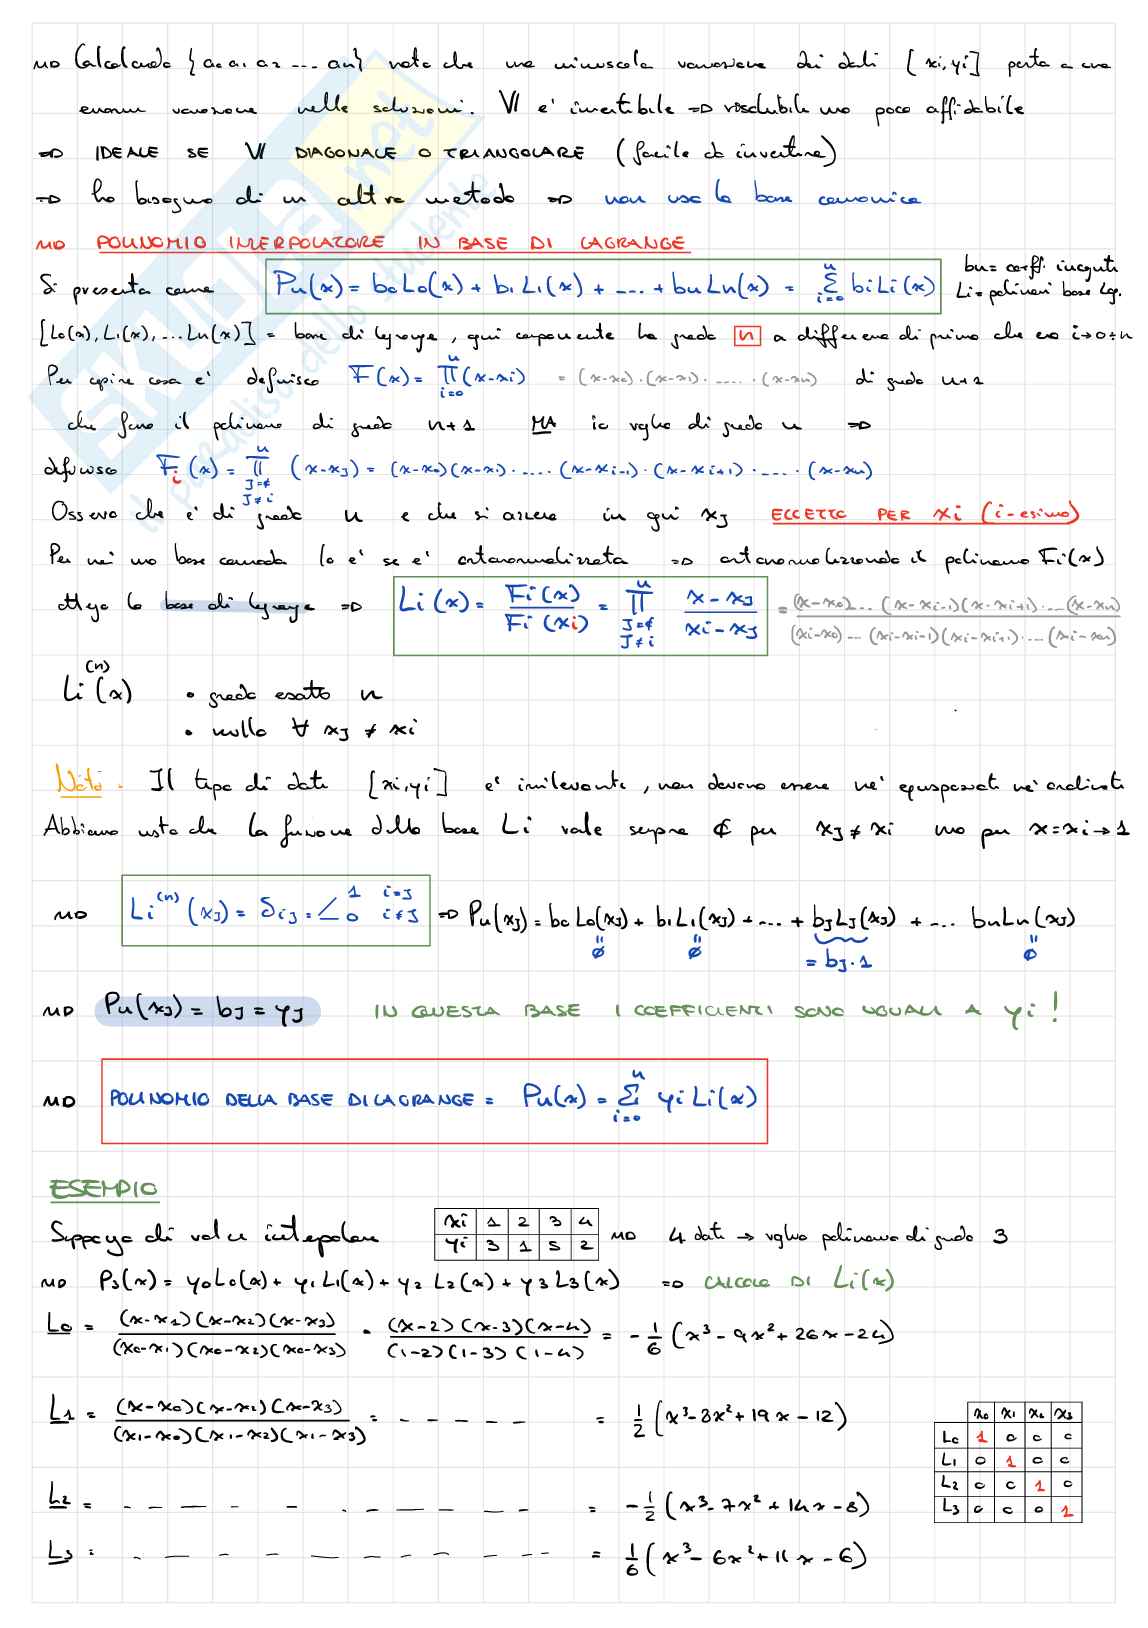 ⇒ Calcolando {a0 a1 a2 ... an} noto che una minuscola variazione dei dati [xi,yi] porta a una
enorme variazione nelle soluzioni. V è invertibile ⇒ risolubile ma poco affidabile
⇒ IDEALE SE V DIAGONALE O TRIANGOLARE (facile da invertire)
⇒ ho bisogno di un altro metodo ⇒ non uso la base canonica
⇒ POLINOMIO INTERPOLATORE IN BASE DI LAGRANGE
Si presenta come Pn(x) = b0L0(x) + b1L1(x) + ... + bnLn(x) = Σ_{i=0}^{n} biLi(x)
bn = coeff. incogniti
Li = polinomi base Lag.
[L0(x), L1(x), ... Ln(x)] = base di lagrange, ogni componente ha grado n a differenza di prima che era i→0÷n
Per capire cosa è definisco F(x) = ∏_{i=0}^{n} (x-xi) = (x-x0)·(x-x1)· ..... ·(x-xn) di grado n+1
che sono il polinomio di grado n+1 MA io voglio di grado n ⇒
definisco Fi(x) = ∏_{J=0, J≠i}^{n} (x-xJ) = (x-x0)(x-x1)· .... ·(x-xi-1)·(x-xi+1)· .... ·(x-xn)
Osservo che è di grado n e che si azzera in ogni xJ ECCETTO PER xi (i-esimo)
Per noi una base comoda lo è se è ortonormalizzata ⇒ ortonormalizzando il polinomio Fi(x)
ottengo la base di lagrange ⇒ Li(x) = Fi(x)/Fi(xi) = ∏_{J=0, J≠i}^{n} (x-xJ)/(xi-xJ) = (x-x0)...(x-xi-1)(x-xi+1)....(x-xn) / (xi-x0)...(xi-xi-1)(xi-xi+1)....(xi-xn)
Li^(n)(x) • grado esatto n
• nullo ∀ xJ ≠ xi
Nota. Il tipo di dati [xi,yi] è irrilevante, non devono essere nè equispaziati nè ordinati
Abbiamo visto che la funzione della base Li vale sempre 0 per xJ≠xi ma per x=xi→1
⇒ Li^(n)(xJ) = δiJ = < 1 i=J 0 i≠J ⇒ Pn(xJ) = b0L0(xJ) + b1L1(xJ) + ... + bJLJ(xJ) + ... bnLn(xJ)
" 0 " 0 = bJ·1 " 0
⇒ Pn(xJ) = bJ = yJ IN QUESTA BASE I COEFFICIENTI SONO UGUALI A yi!
⇒ POLINOMIO DELLA BASE DI LAGRANGE = Pn(x) = Σ_{i=0}^{n} yiLi(x)
ESEMPIO
Suppongo di voler interpolare
xi 1 2 3 4
yi 3 1 5 2
⇒ 4 dati → voglio polinomio di grado 3
⇒ P3(x) = y0L0(x) + y1L1(x) + y2L2(x) + y3L3(x) ⇒ CALCOLO DI Li(x)
L0 = (x-x1)(x-x2)(x-x3) / (x0-x1)(x0-x2)(x0-x3) = (x-2)(x-3)(x-4) / (1-2)(1-3)(1-4) = -1/6 (x³-9x²+26x-24)
L1 = (x-x0)(x-x2)(x-x3) / (x1-x0)(x1-x2)(x1-x3) = - - - - - = 1/2 (x³-8x²+19x-12)
L2 = - - - - - - - - - - = -1/2 (x³-7x²+14x-8)
L3 = - - - - - - - - - - = 1/6 (x³-6x²+11x-6)
x0 x1 x2 x3
L0 1 0 0 0
L1 0 1 0 0
L2 0 0 1 0
L3 0 0 0 1